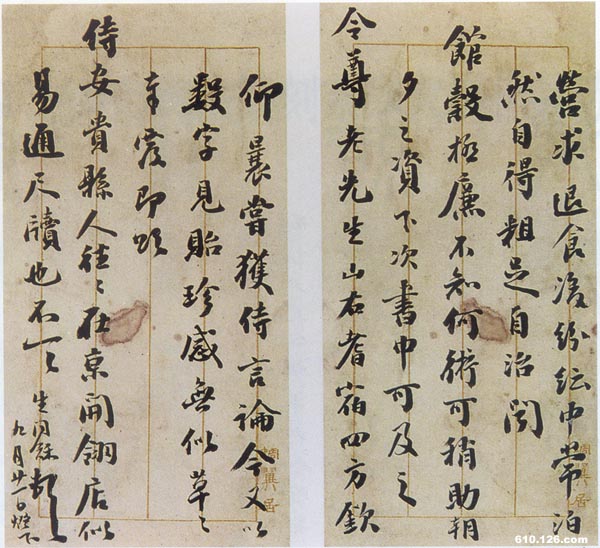 營求退食後紛紜中常泊
然自得粗足自治閱
館穀極廉不知何術可稍助朝
夕之資下次書中可及之
令尊老先生山右耆宿四方欽
仰曩嘗獲侍言論今又以
數字見貽珍感無似草々
幸覆即頌
侍安貴縣人往々在京開翎店似
易通尺牘也不一々
生閻
九月廿一日燈下
610.126.com